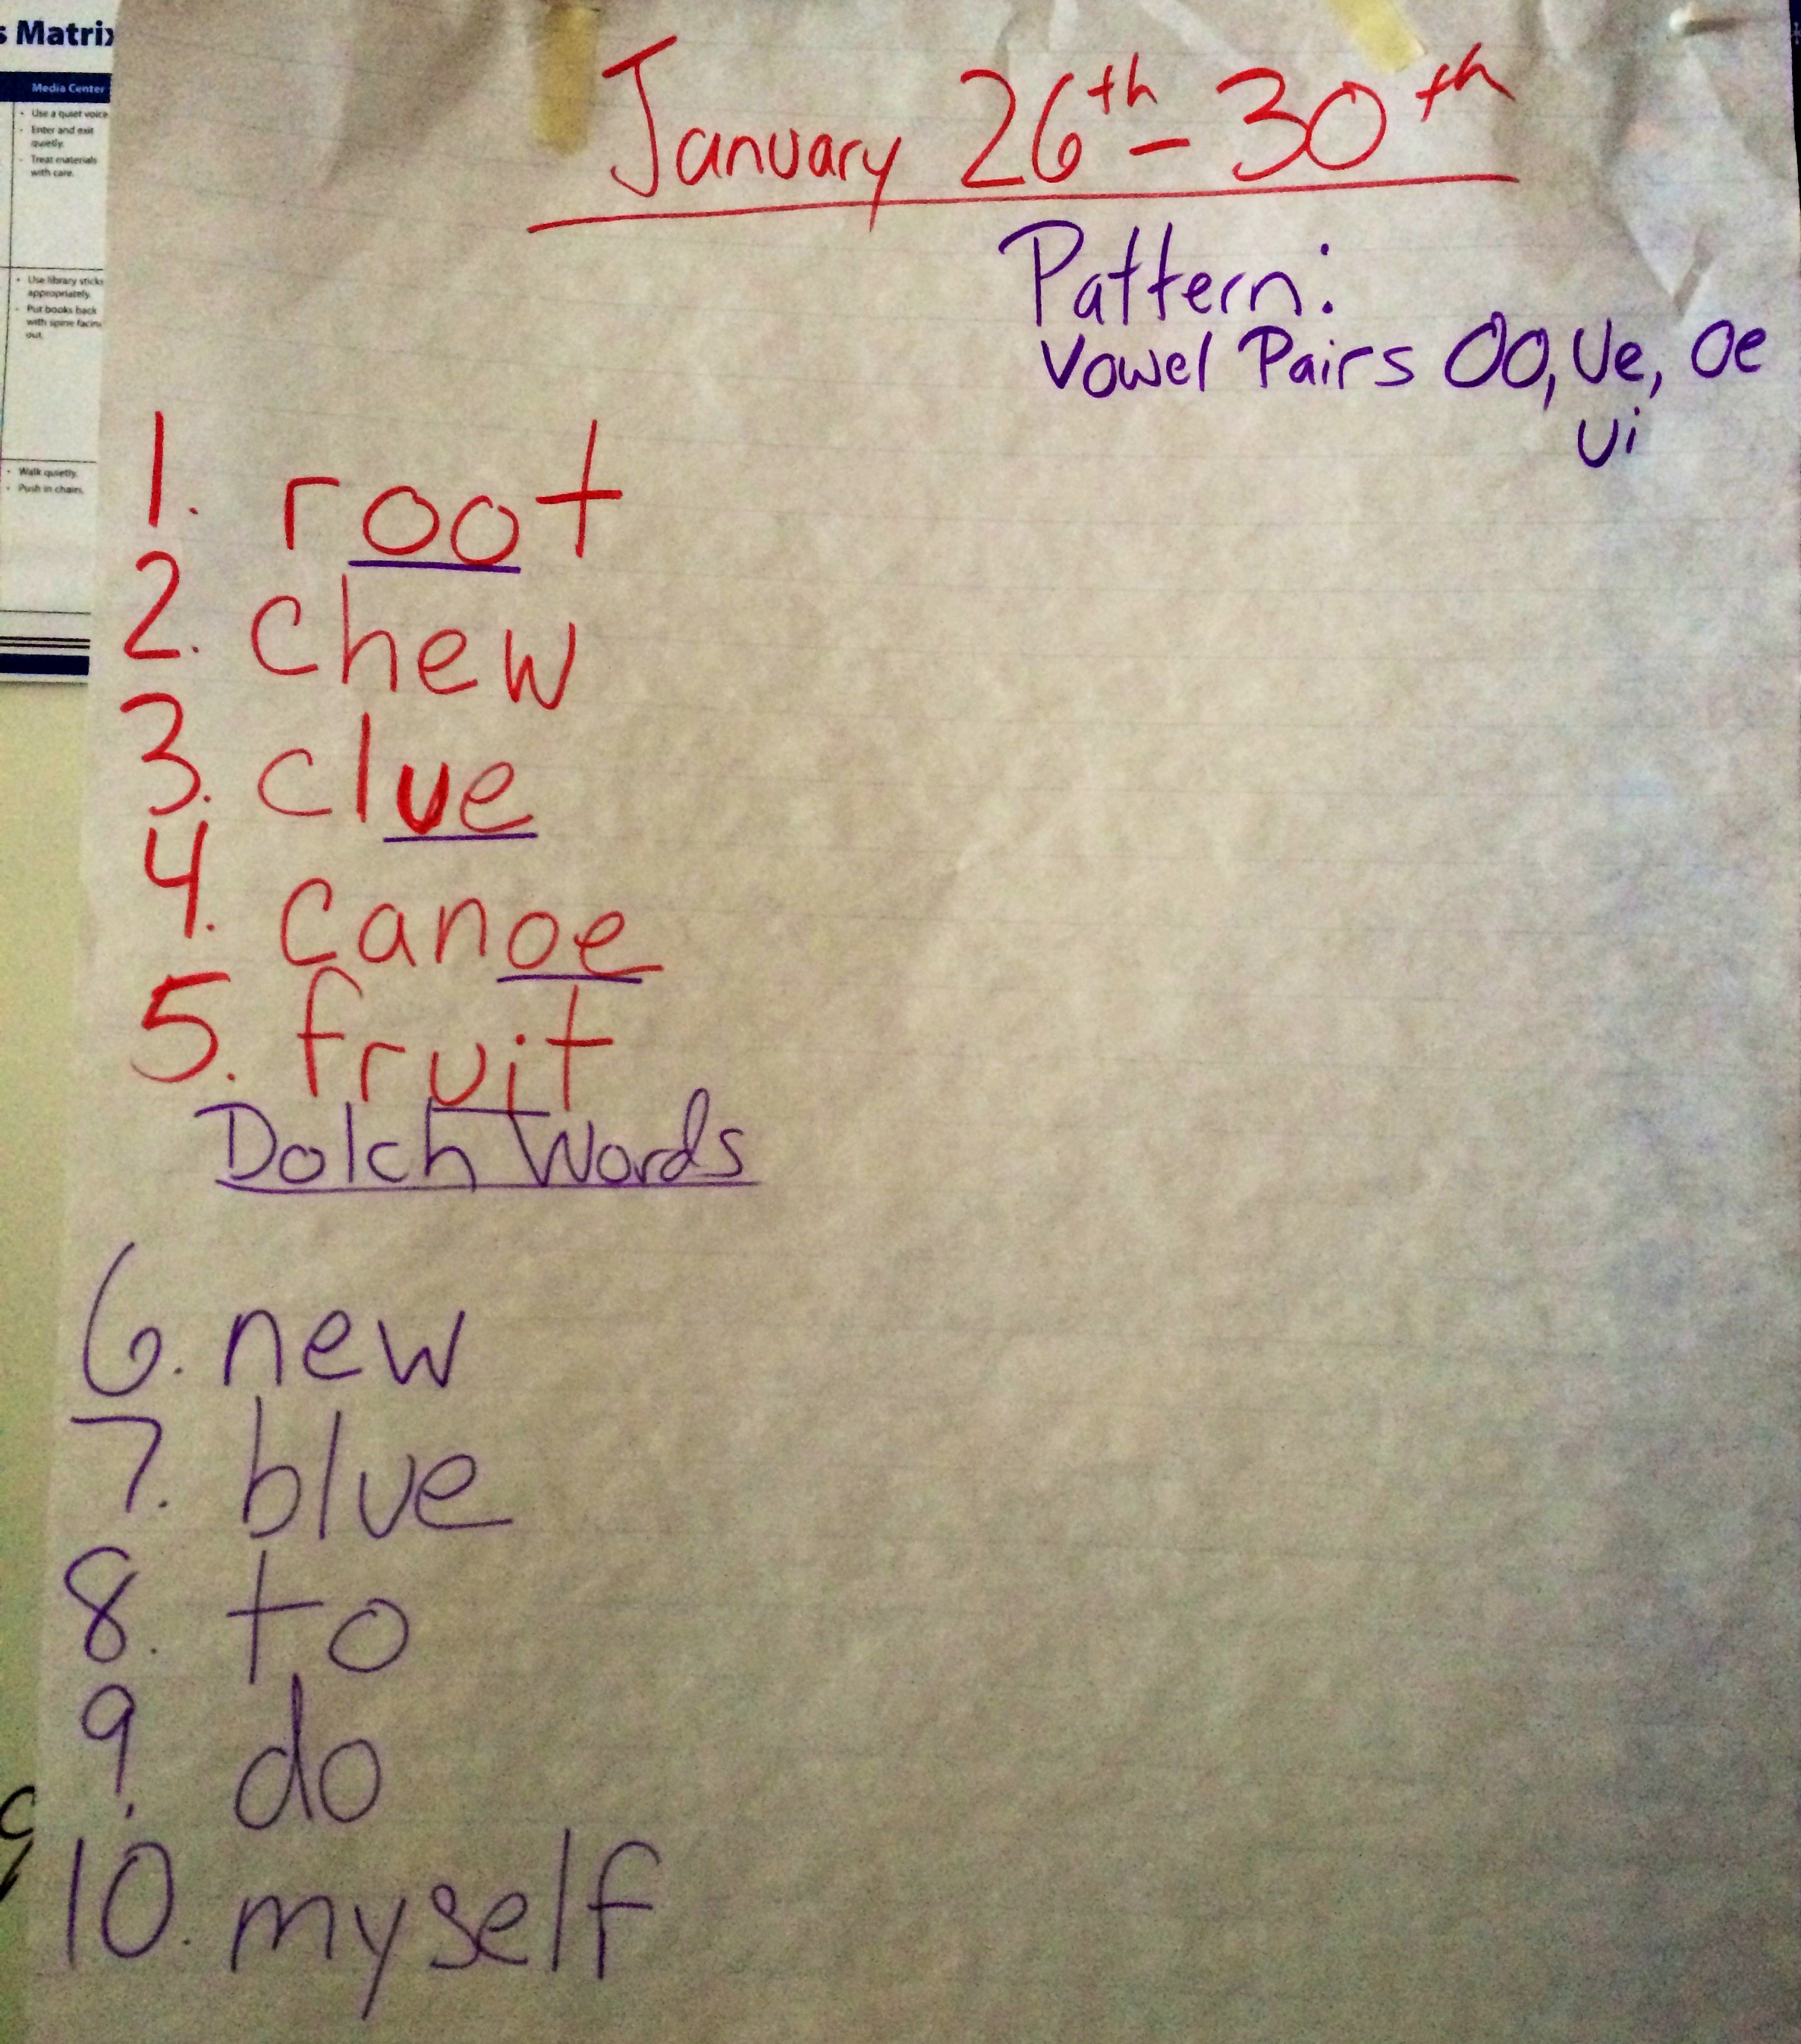 s Matrix
Media Center
• Use a quiet voice
• Enter and exit
quietly.
• Treat materials
with care.
• Use library sticks
appropriately.
• Put books back
with spine facing
out.
• Walk quietly.
• Push in chairs.
January 26th - 30th
Pattern:
Vowel Pairs Oo, Ue, Oe
ui
1. root
2. chew
3. clue
4. canoe
5. fruit
Dolch Words
6. new
7. blue
8. to
9. do
10. myself